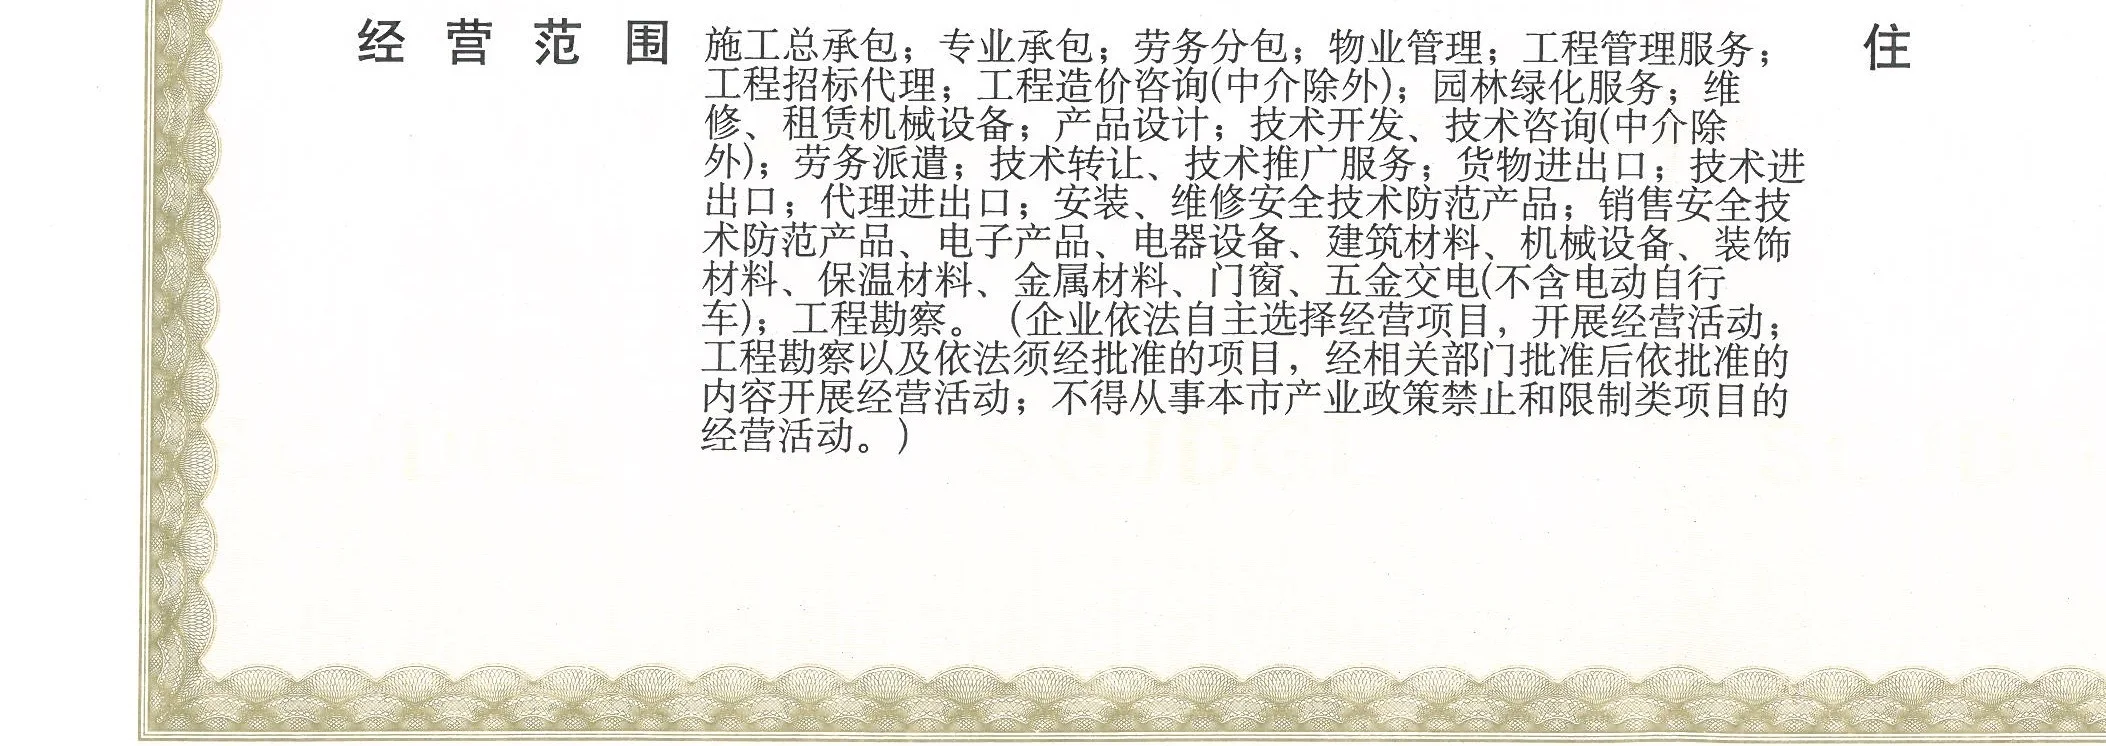 经营范围 施工总承包；专业承包；劳务分包；物业管理；工程管理服务； 住
工程招标代理；工程造价咨询(中介除外)；园林绿化服务；维
修、租赁机械设备；产品设计；技术开发、技术咨询(中介除
外)；劳务派遣；技术转让、技术推广服务；货物进出口；技术进
出口；代理进出口；安装、维修安全技术防范产品；销售安全技
术防范产品、电子产品、电器设备、建筑材料、机械设备、装饰
材料、保温材料、金属材料、门窗、五金交电(不含电动自行
车)；工程勘察。（企业依法自主选择经营项目，开展经营活动；
工程勘察以及依法须经批准的项目，经相关部门批准后依批准的
内容开展经营活动；不得从事本市产业政策禁止和限制类项目的
经营活动。）